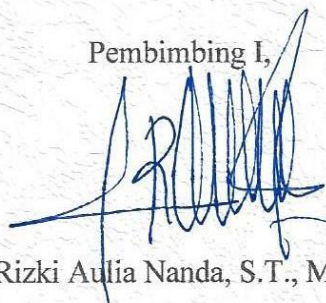 Pembimbing I,
Rizki Aulia Nanda, S.T., M